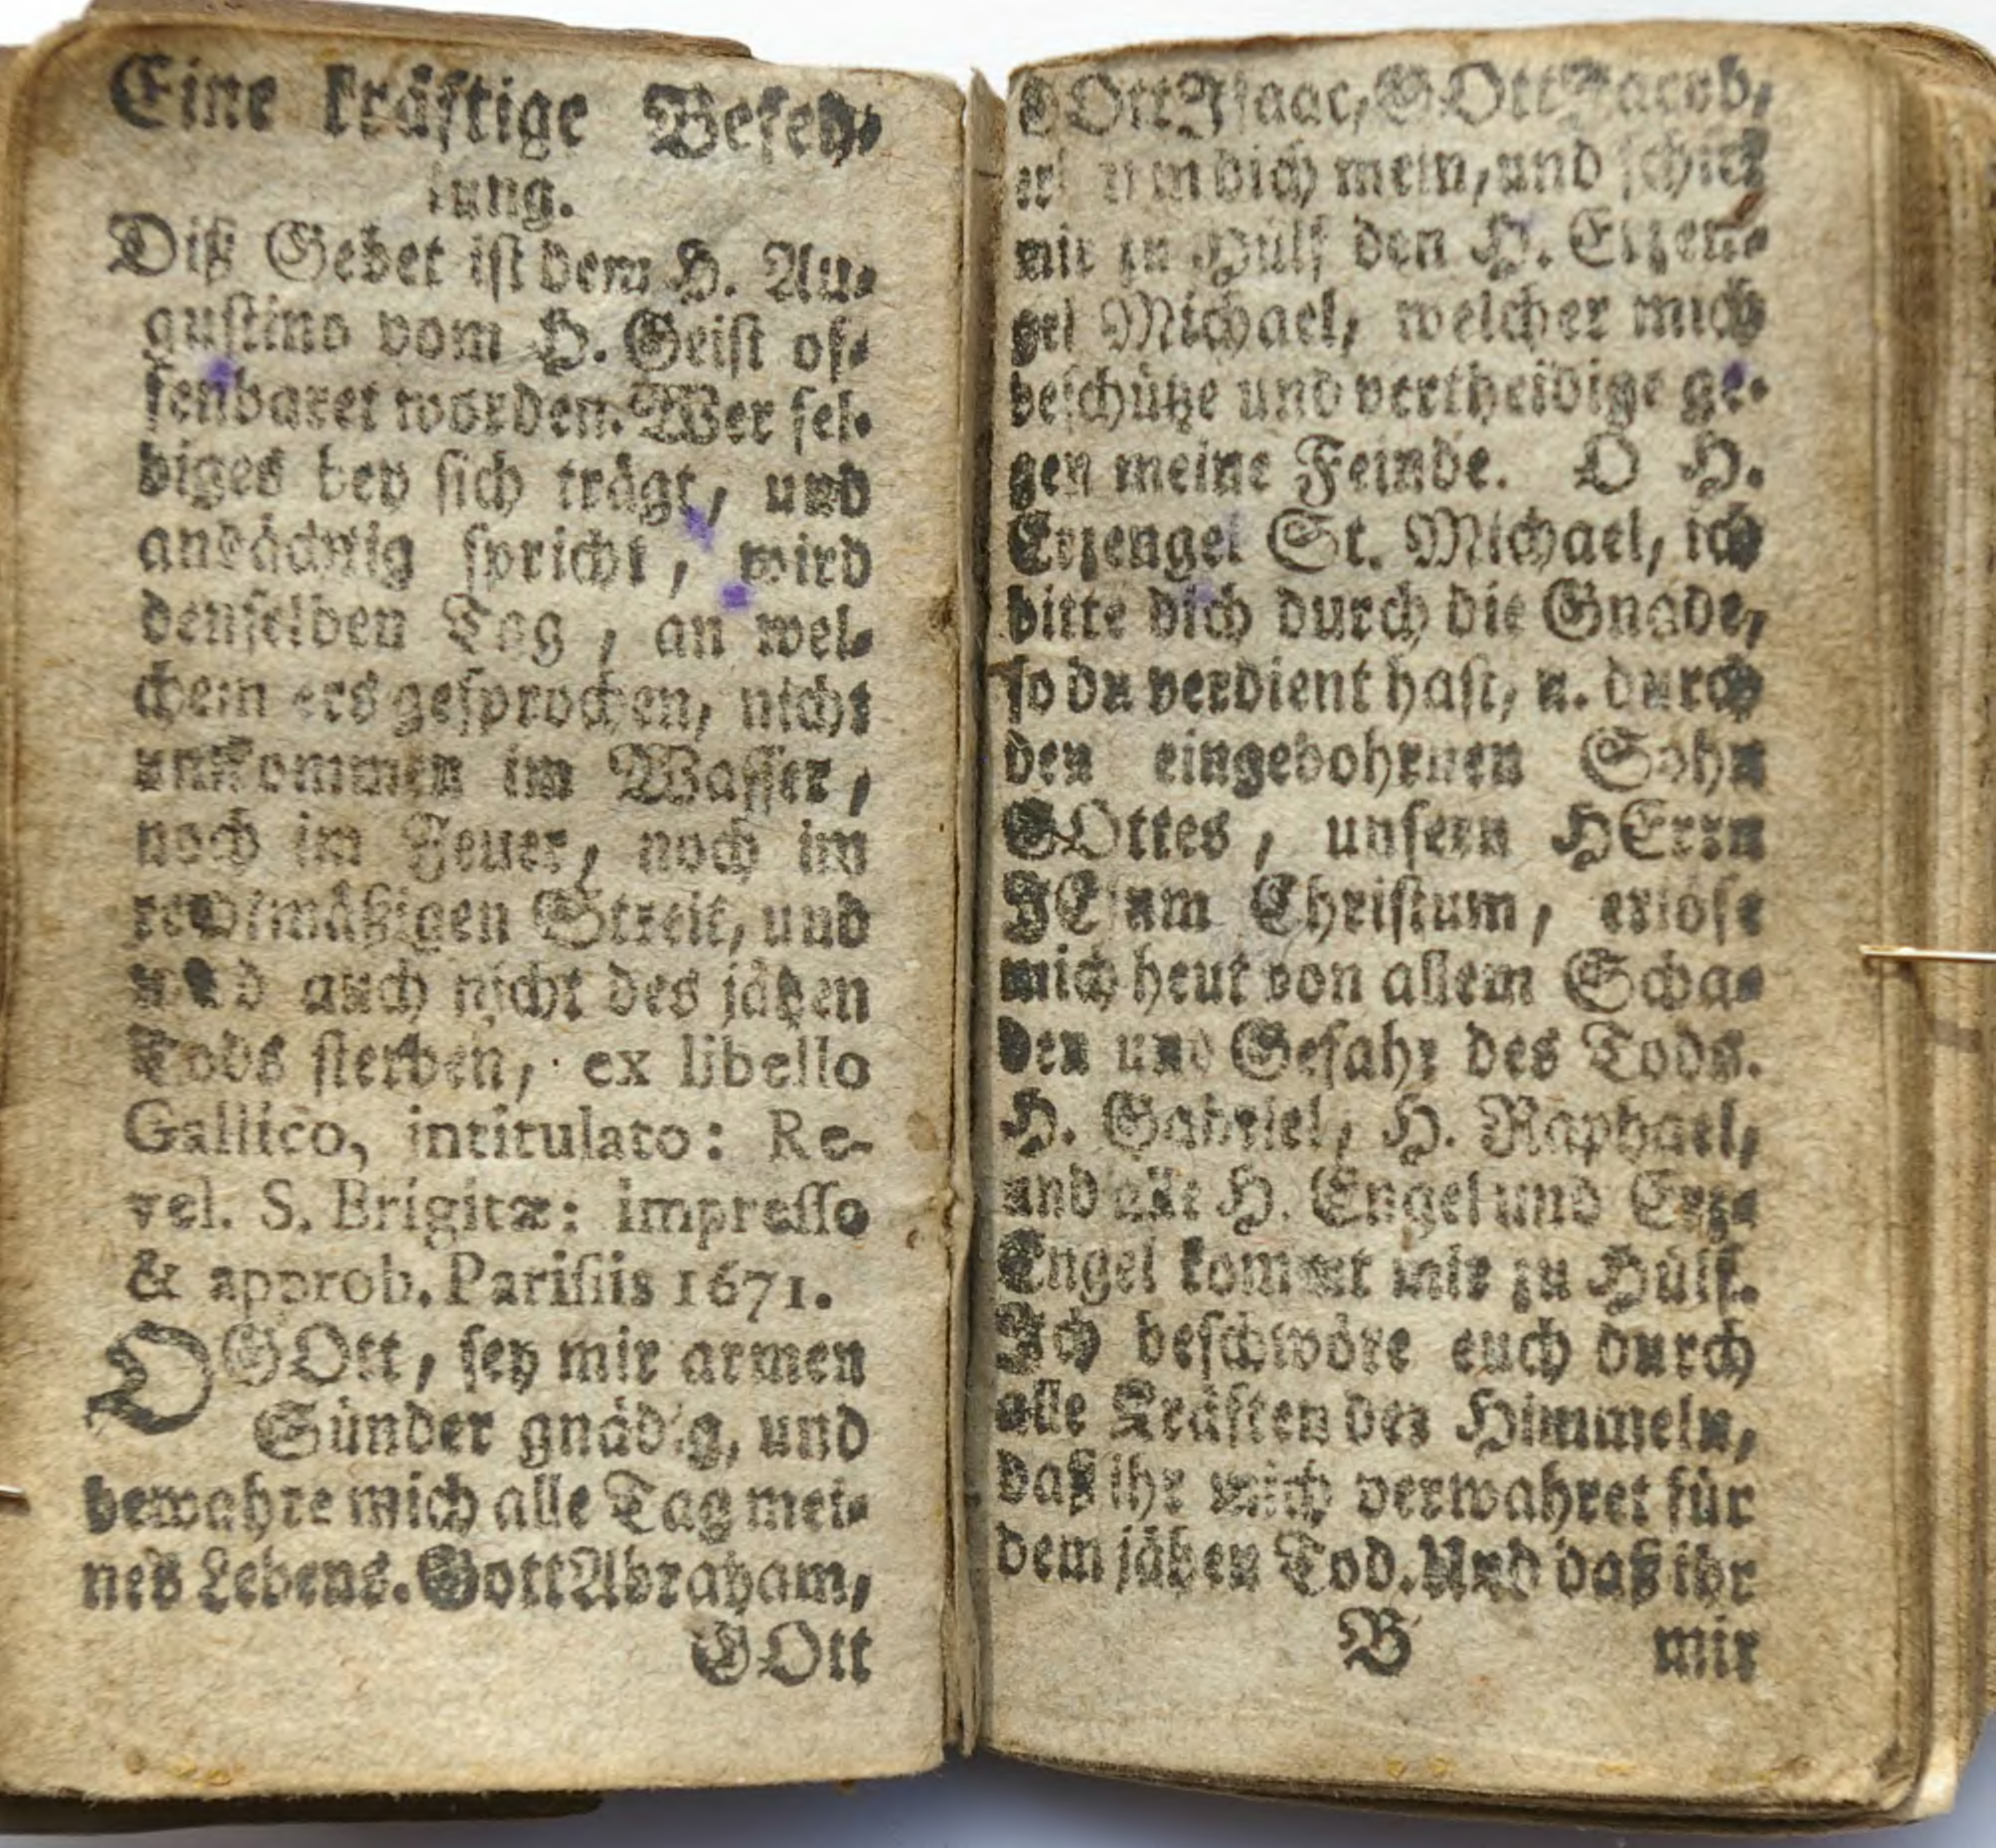 Eine kräftige Befeh-
lung.
Diß Gebet ist dem H. Au-
gustino vom H. Geist of-
fenbaret worden. Wer sel-
biges bey sich trägt, und
andächtig spricht, wird
denselben Tag, an wel-
chem ers gesprochen, nicht
umkommen im Wasser,
noch im Feuer, noch im
rechtmäßigen Streit, und
wird auch nicht des jähen
Tods sterben, ex libello
Gallico, intitulato: Re-
vel. S. Brigitæ: impresso
& approb. Parisiis 1671.
O GOtt, sey mir armen
Sünder gnädig, und
bewahre mich alle Tag mei-
nes Lebens. Gott Abraham,
GOtt
GOtt Isaac, GOtt Jacob,
dich mein, und schick
mir zu Hülf den H. Erzen-
gel Michael, welcher mich
beschütze und vertheidige ge-
gen meine Feinde. O H.
Erzengel St. Michael, ich
bitte dich durch die Gnade,
so du verdient hast, u. durch
den eingebohrnen Sohn
GOttes, unsern HErrn
JEsum Christum, erlöse
mich heut von allem Scha-
den und Gefahr des Tods.
H. Gabriel, H. Raphael,
und alle H. Engel und Erz-
Engel kommt mir zu Hülf.
Ich beschwöre euch durch
alle Kräften der Himmeln,
daß ihr mich verwahret für
dem jähen Tod. Und daß ihr
B mir